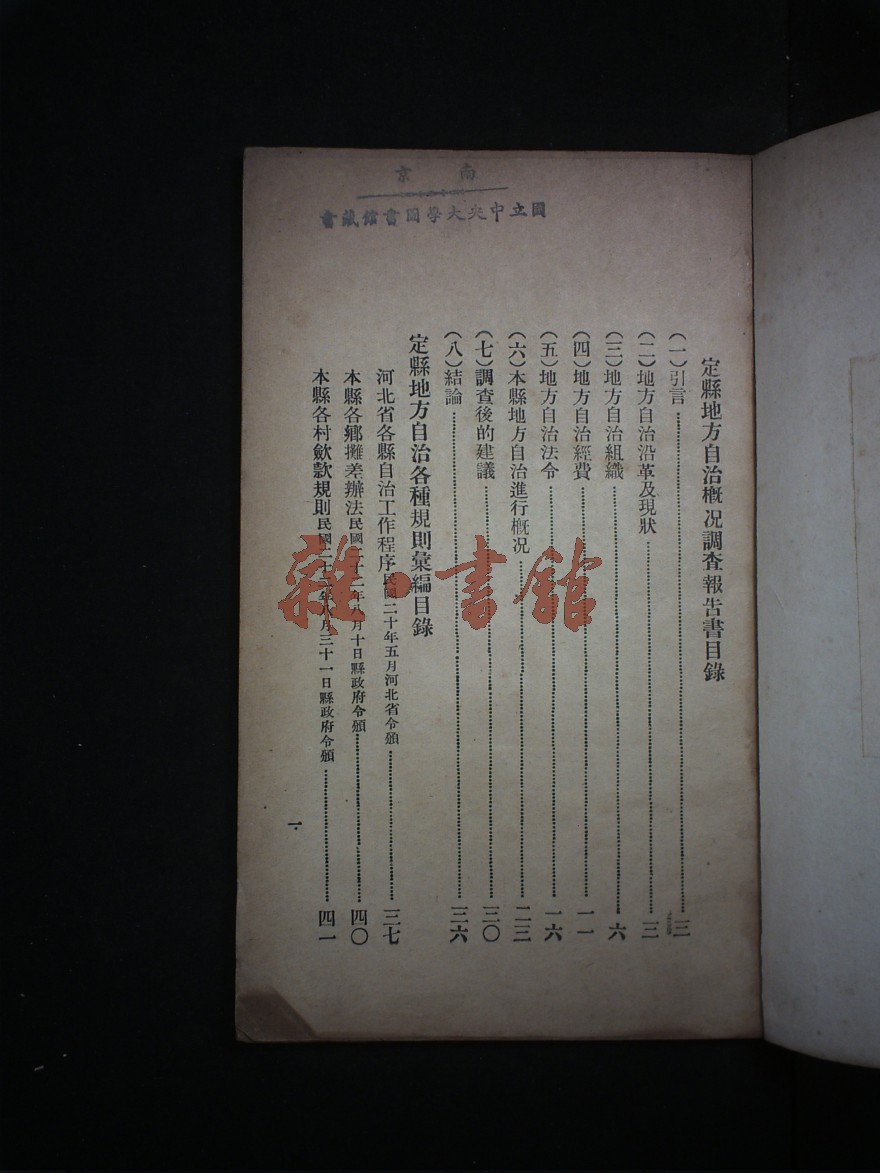 南京
國立中央大學圖書館藏書
定縣地方自治概况調查報告書目錄
(一)引言……三
(二)地方自治沿革及現狀……三
(三)地方自治組織……六
(四)地方自治經費……一一
(五)地方自治法令……一六
(六)本縣地方自治進行概况……二三
(七)調查後的建議……三〇
(八)結論……三六
定縣地方自治各種規則彙編目錄
河北省各縣自治工作程序民國二十年五月河北省令頒……三七
本縣各鄉攤差辦法民國二十二年八月十日縣政府令頒……四〇
本縣各村斂款規則民國二十二年八月三十一日縣政府令頒……四一
一
雜·書館